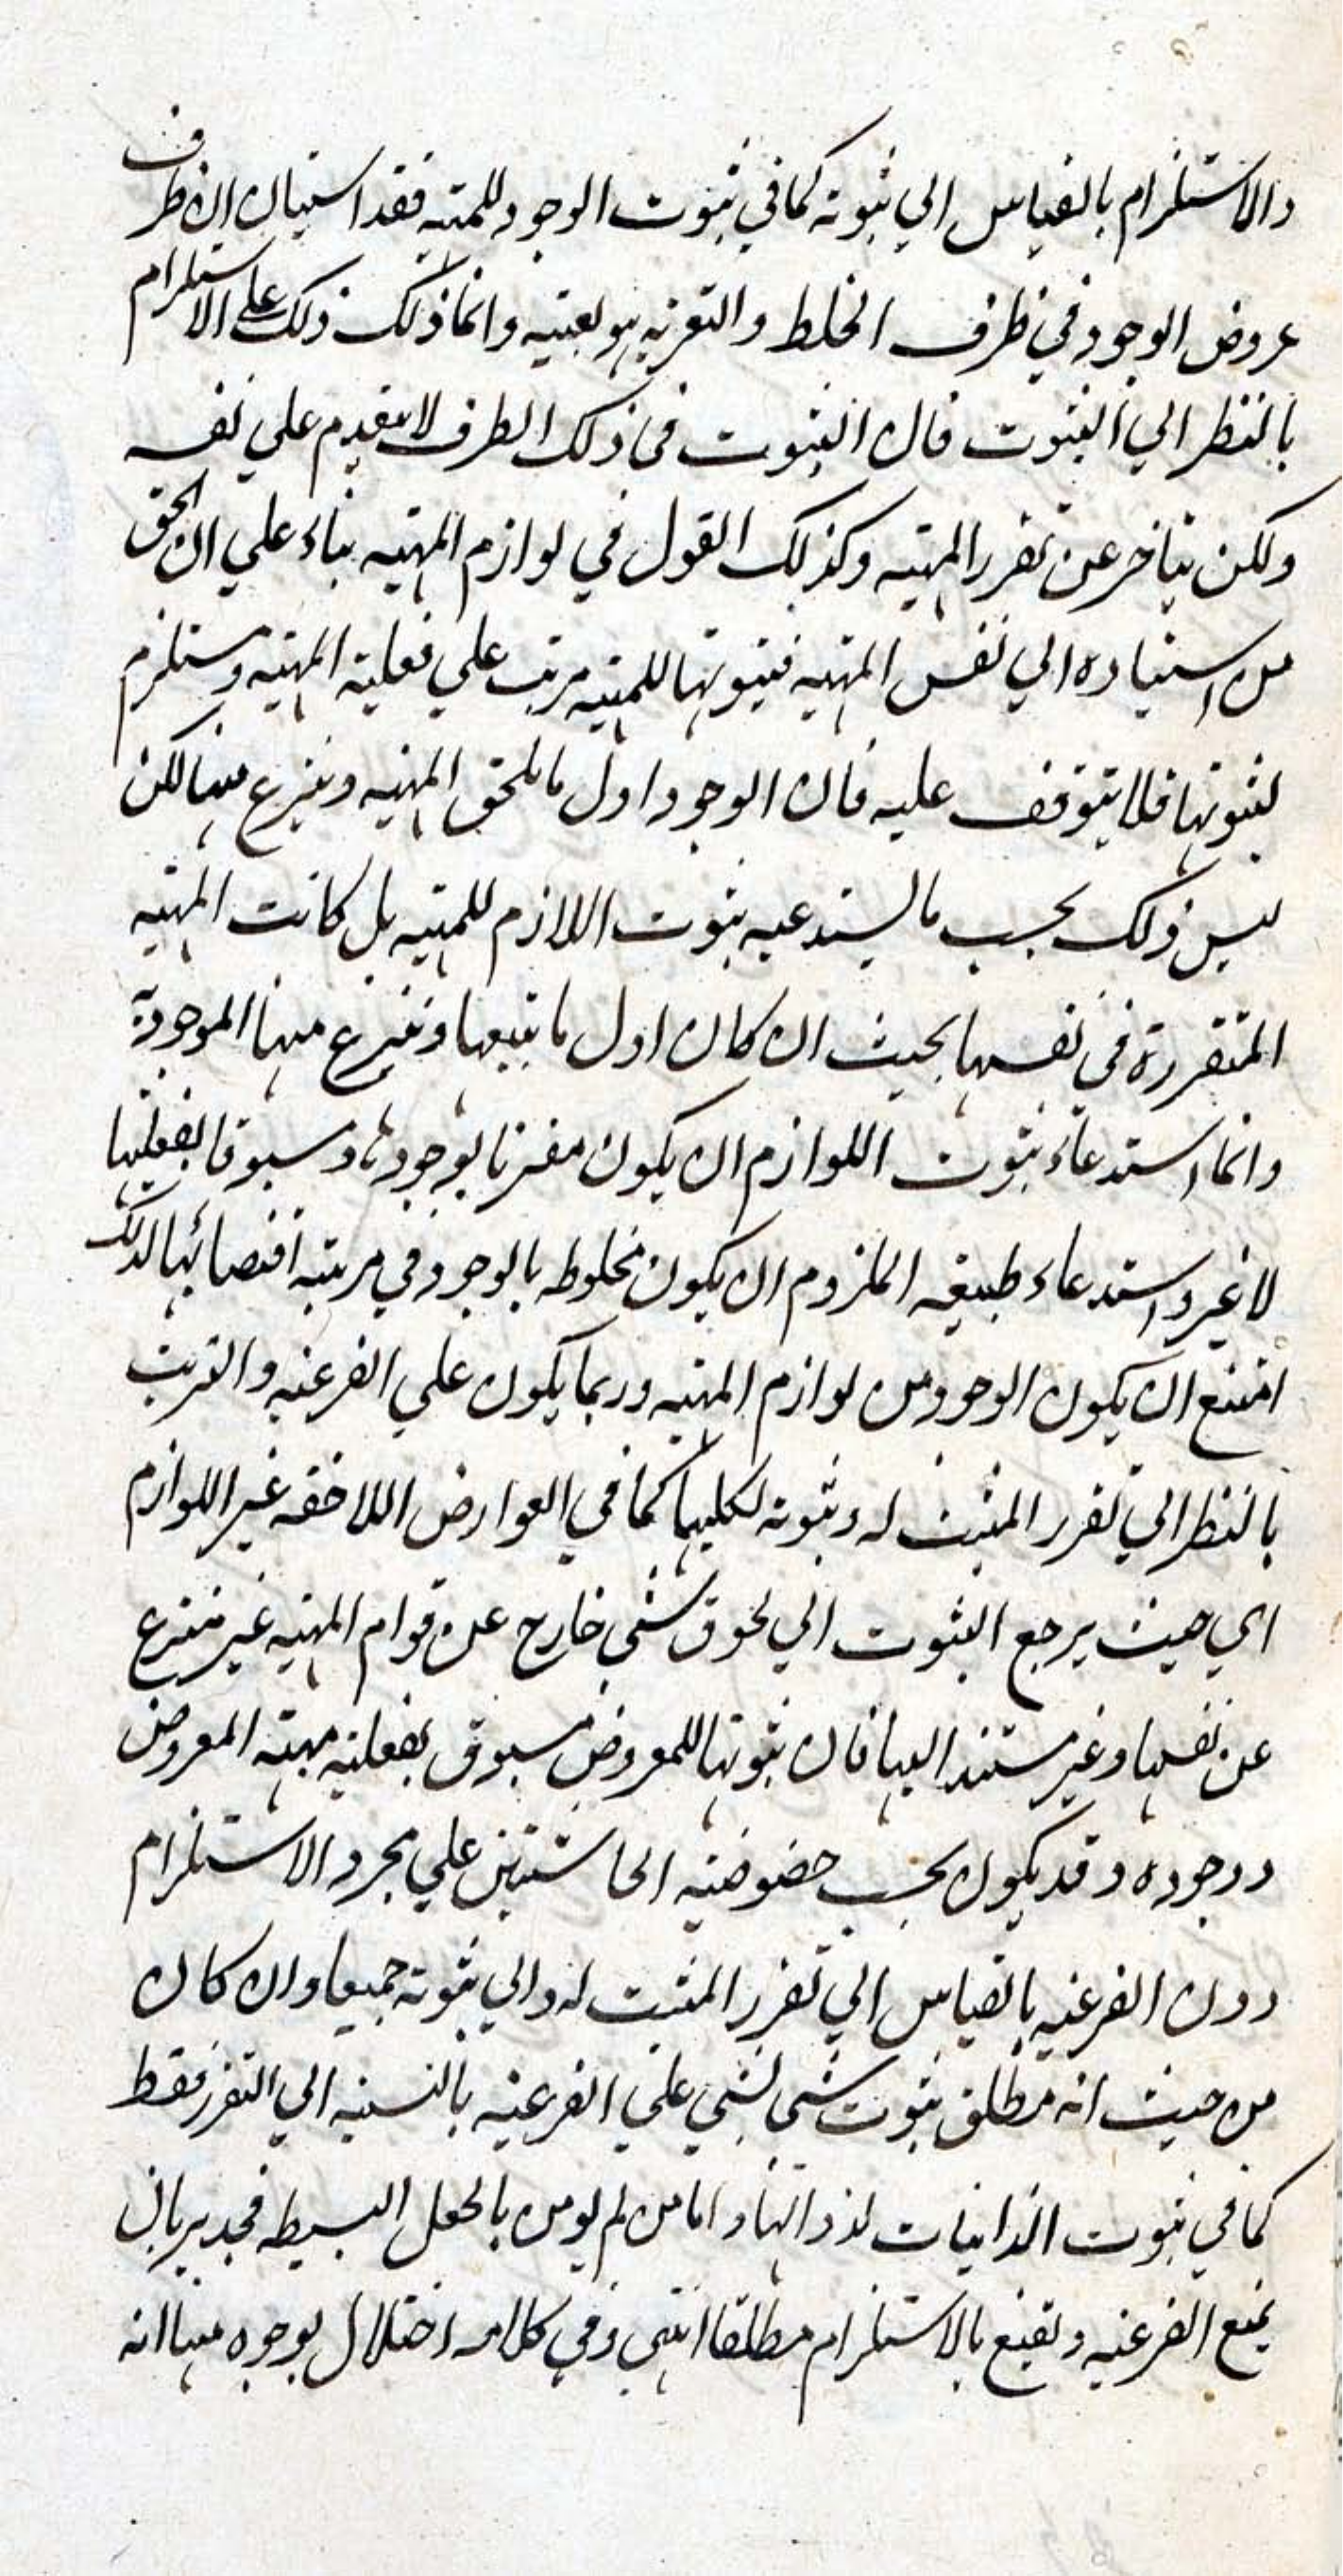 والاستلزام بالقياس الي ثبوته كما في ثبوت الوجود للمهية فقد استبان ان ظرف
عروض الوجود في ظرف الخلط والتعرية هو بعينه وانما ذلك ذلك على الاستلزام
بالنظر الي الثبوت فان الثبوت في ذلك الظرف لا يتقدم علي نفسه
ولكن يتاخر عن تقرر المهية وكذلك القول في لوازم المهية بناء علي ان الحق
من استناده الي نفس المهية فثبوتها للمهية مرتب علي فعلية المهية ومستلزم
لثبوتها فلا يتوقف عليه فان الوجود اول ما يلحق المهية وينتزع منها لكن
ليس ذلك بحسب ما يستدعيه ثبوت اللازم للمهية بل كانت المهية
المتقررة في نفسها بحيث ان كان اول ما يتبعها وينتزع منها الموجودية
وانما استدعاء ثبوت اللوازم ان يكون مقترنا بوجودها ومسبوقا بفعليتها
لا غير واستدعاء طبيعة الملزوم ان يكون مخلوطه بالوجود في مرتبة اقتضائها لذلك
امتنع ان يكون الوجود من لوازم المهية وربما يكون علي الفرعية والترتب
بالنظر الي تقرر المثبت له وثبوته لكليهما كما في العوارض اللاحقه غير اللوازم
اي حيث يرجع الثبوت الي لحوق شي خارج عن قوام المهية غير منتزع
عن نفسها وغير مستند اليها فان ثبوتها للمعروض مسبوق بفعلية مهية المعروض
ووجوده وقد يكون بحسب خصوصية الحاشتين علي مجرد الاستلزام
دون الفرعية بالقياس الي تقرر المثبت له والي ثبوته جميعا وان كان
من حيث انه مطلق ثبوت شي لشي علي الفرعية بالنسبة الي التقرر فقط
كما في ثبوت الذاتيات لذواتها واما من لم يومن بالجعل البسيط فجدير بان
يمنع الفرعية ويقنع بالاستلزام مطلقا انتهى وفي كلامه اختلال بوجوه منها انه